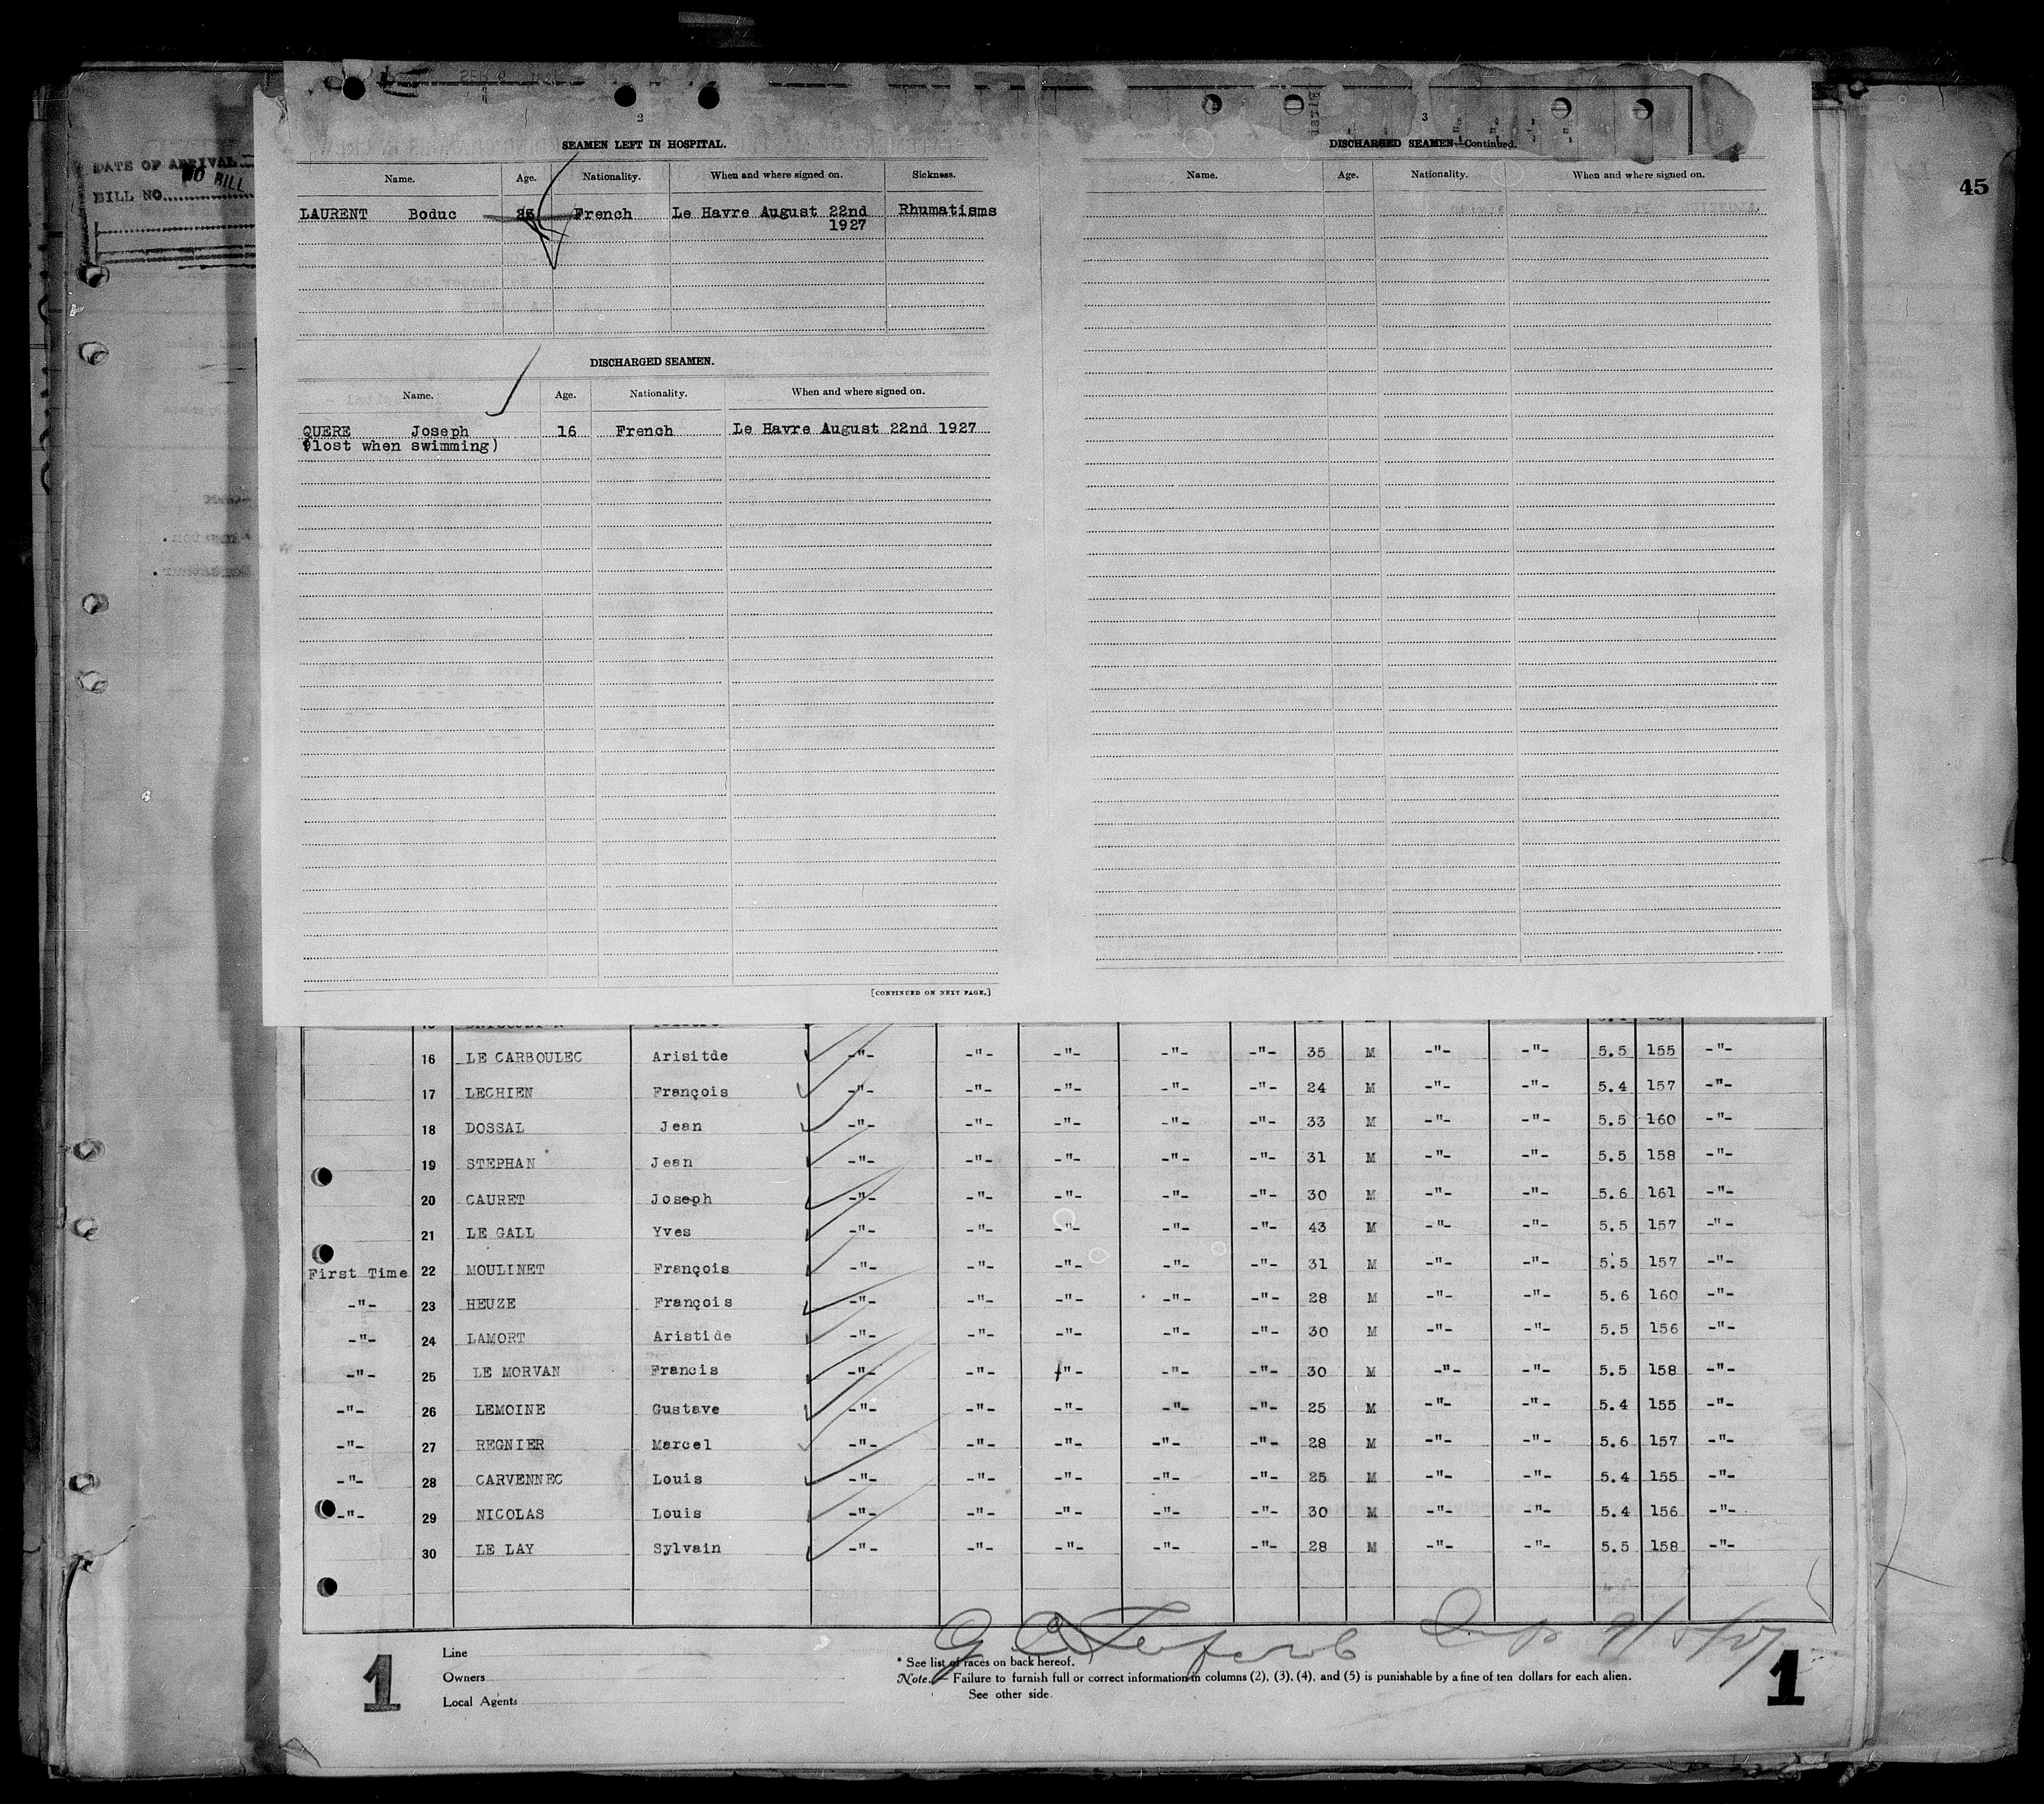 DATE OF ARRIVAL
NO BILL
BILL NO.
45
2
SEAMEN LEFT IN HOSPITAL.
Name. Age. Nationality. When and where signed on. Sickness.
LAURENT Boduc French Le Havre August 22nd Rhumatisms
1927
DISCHARGED SEAMEN.
Name. Age. Nationality. When and where signed on.
QUERE Joseph 16 French Le Havre August 22nd 1927
(lost when swimming)
[CONTINUED ON NEXT PAGE.]
3
DISCHARGED SEAMEN—Continued.
Name. Age. Nationality. When and where signed on.
16 LE CARBOULEC Arisitde -"- -"- -"- -"- -"- 35 M -"- -"- 5.5 155 -"-
17 LECHIEN François -"- -"- -"- -"- -"- 24 M -"- -"- 5.4 157 -"-
18 DOSSAL Jean -"- -"- -"- -"- -"- 33 M -"- -"- 5.5 160 -"-
19 STEPHAN Jean -"- -"- -"- -"- -"- 31 M -"- -"- 5.5 158 -"-
20 CAURET Joseph -"- -"- -"- -"- -"- 30 M -"- -"- 5.6 161 -"-
21 LE GALL Yves -"- -"- -"- -"- -"- 43 M -"- -"- 5.5 157 -"-
First Time 22 MOULINET François -"- -"- -"- -"- -"- 31 M -"- -"- 5.5 157 -"-
-"- 23 HEUZE François -"- -"- -"- -"- -"- 28 M -"- -"- 5.6 160 -"-
-"- 24 LAMORT Aristide -"- -"- -"- -"- -"- 30 M -"- -"- 5.5 156 -"-
-"- 25 LE MORVAN Francis -"- -"- -"- -"- -"- 30 M -"- -"- 5.5 158 -"-
-"- 26 LEMOINE Gustave -"- -"- -"- -"- -"- 25 M -"- -"- 5.4 155 -"-
-"- 27 REGNIER Marcel -"- -"- -"- -"- -"- 28 M -"- -"- 5.6 157 -"-
-"- 28 CARVENNEC Louis -"- -"- -"- -"- -"- 25 M -"- -"- 5.4 155 -"-
-"- 29 NICOLAS Louis -"- -"- -"- -"- -"- 30 M -"- -"- 5.4 156 -"-
30 LE LAY Sylvain -"- -"- -"- -"- -"- 28 M -"- -"- 5.5 158 -"-
1
Line
Owners
Local Agents
* See list of races on back hereof.
Note.— Failure to furnish full or correct information in columns (2), (3), (4), and (5) is punishable by a fine of ten dollars for each alien.
See other side.
1